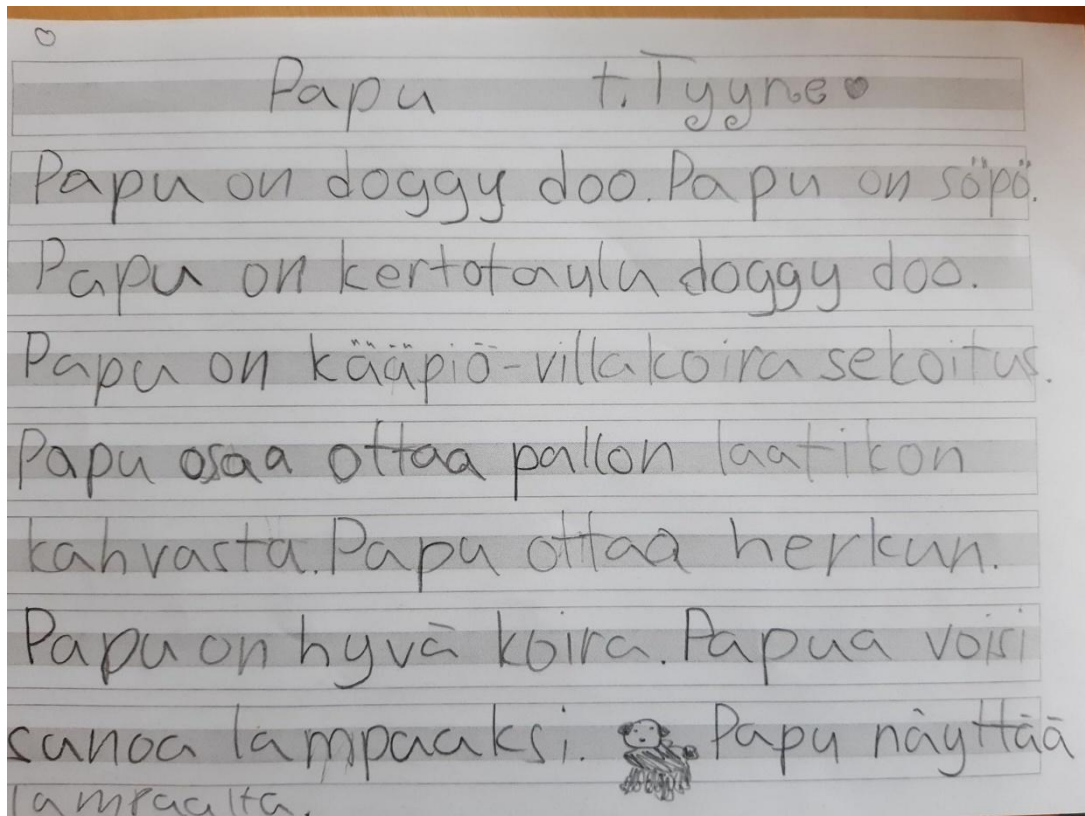 Papu t. Tyyne
Papu on doggy doo. Papu on söpö.
Papu on kertotaulu doggy doo.
Papu on kääpiö-villakoira sekoitus.
Papu osaa ottaa pallon laatikon
kahvasta. Papu ottaa herkun.
Papu on hyvä koira. Papua voisi
sanoa lampaaksi. Papu näyttää
lampaalta.